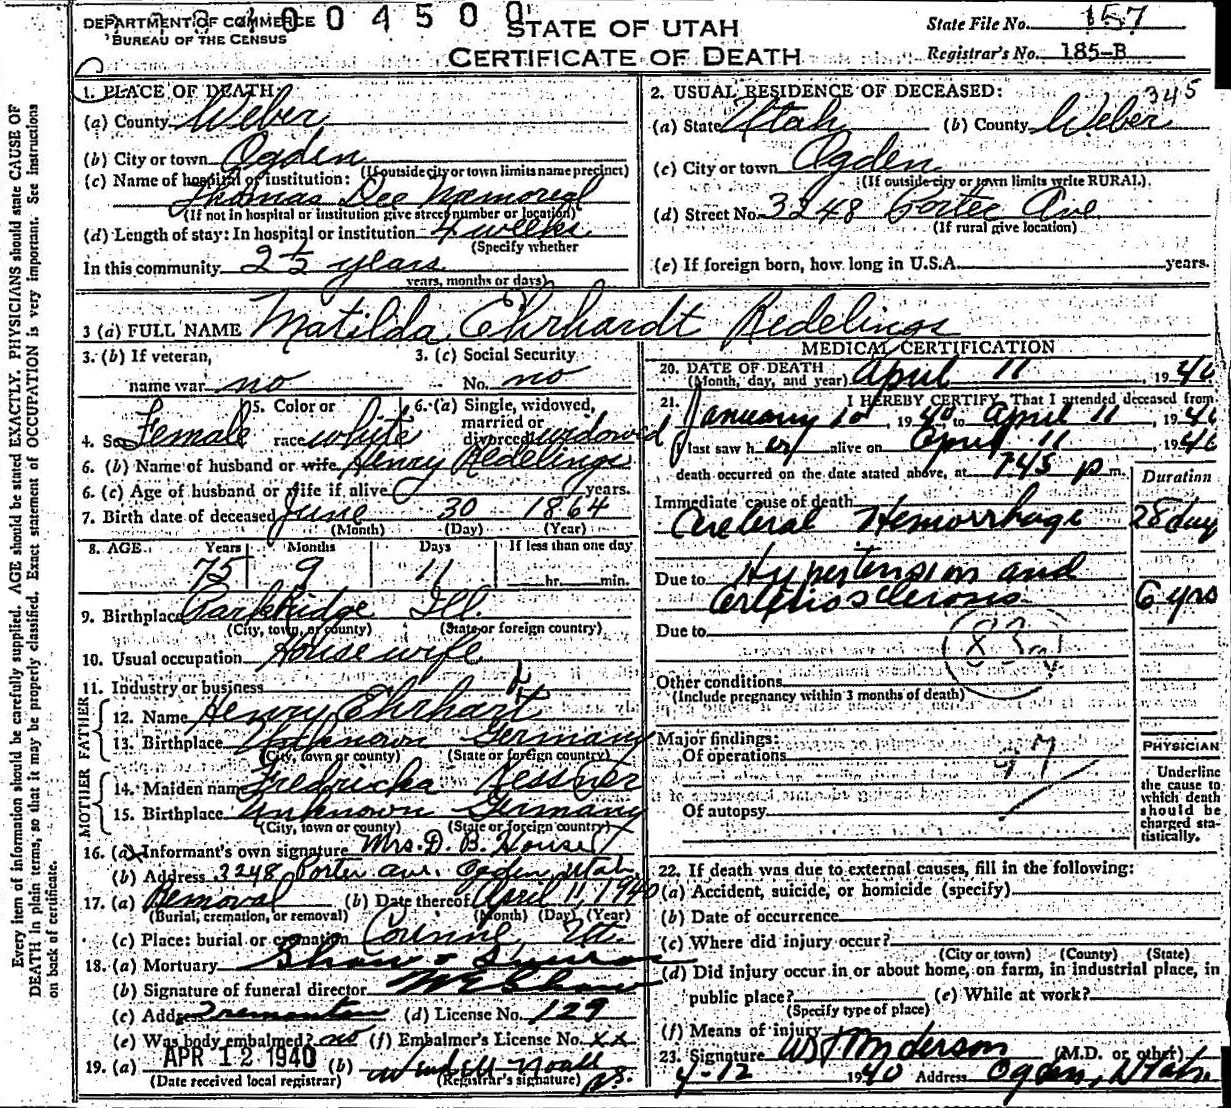 DEPARTMENT OF COMMERCE
BUREAU OF THE CENSUS
0 0 4 5 0 0
STATE OF UTAH
CERTIFICATE OF DEATH
State File No. 157
Registrar's No. 185-B
1. PLACE OF DEATH:
(a) County Weber
(b) City or town Ogden
(If outside city or town limits name precinct)
(c) Name of hospital or institution:
Thomas Dee Memorial
(If not in hospital or institution give street number or location)
(d) Length of stay: In hospital or institution 4 weeks
(Specify whether
In this community 2 1/2 years
years, months or days)
2. USUAL RESIDENCE OF DECEASED: 345
(a) State Utah (b) County Weber
(c) City or town Ogden
(If outside city or town limits write RURAL)
(d) Street No. 3248 Porter Ave
(If rural give location)
(e) If foreign born, how long in U.S.A. years.
3 (a) FULL NAME Matilda Ehrhardt Redelings
3. (b) If veteran,
name war no
3. (c) Social Security
No. no
4. Sex Female
5. Color or
race white
6. (a) Single, widowed,
married or
divorced widowed
6. (b) Name of husband or wife Henry Redelings
6. (c) Age of husband or wife if alive years.
7. Birth date of deceased June 30 1864
(Month) (Day) (Year)
8. AGE Years Months Days If less than one day
75 9 11 hr. min.
9. Birthplace Park Ridge Ill.
(City, town, or county) (State or foreign country)
10. Usual occupation House wife
11. Industry or business
FATHER
12. Name Henry Ehrhart
13. Birthplace Unknown Germany
(City, town or county) (State or foreign country)
MOTHER
14. Maiden name Fredricka Messner
15. Birthplace Unknown Germany
(City, town or county) (State or foreign country)
16. (a) Informant's own signature Mrs. D. B. House
(b) Address 3248 Porter ave. Ogden, Utah
17. (a) Removal (b) Date thereof April 11, 1940
(Burial, cremation, or removal) (Month) (Day) (Year)
(c) Place: burial or cremation Corinne, Ut.
18. (a) Mortuary Shaw &
(b) Signature of funeral director
(c) Address Tremonton (d) License No. 129
(e) Was body embalmed? no (f) Embalmer's License No. xx
19. (a) APR 12 1940 (b)
(Date received local registrar) (Registrar's signature)
MEDICAL CERTIFICATION
20. DATE OF DEATH
(Month, day, and year) April 11, 1940
21. I HEREBY CERTIFY, That I attended deceased from
January 10, 1940, to April 11, 1940
I last saw her alive on April 11 1940
death occurred on the date stated above, at 745 p m.
Duration
Immediate cause of death
Cerebral Hemorrhage 28 days
Due to Hypertension and
arteriosclerosis 6 yrs
Due to
83a
Other conditions
(Include pregnancy within 3 months of death)
Major findings:
Of operations
Of autopsy
PHYSICIAN
Underline
the cause to
which death
should be
charged sta-
tistically.
22. If death was due to external causes, fill in the following:
(a) Accident, suicide, or homicide (specify)
(b) Date of occurrence
(c) Where did injury occur?
(City or town) (County) (State)
(d) Did injury occur in or about home, on farm, in industrial place, in
public place? (e) While at work?
(Specify type of place)
(f) Means of injury
23. Signature Anderson (M.D. or other)
4-12 1940 Address Ogden, Utah.
Every item of information should be carefully supplied. AGE should be stated EXACTLY. PHYSICIANS should state CAUSE OF
DEATH in plain terms, so that it may be properly classified. Exact statement of OCCUPATION is very important. See instructions
on back of certificate.